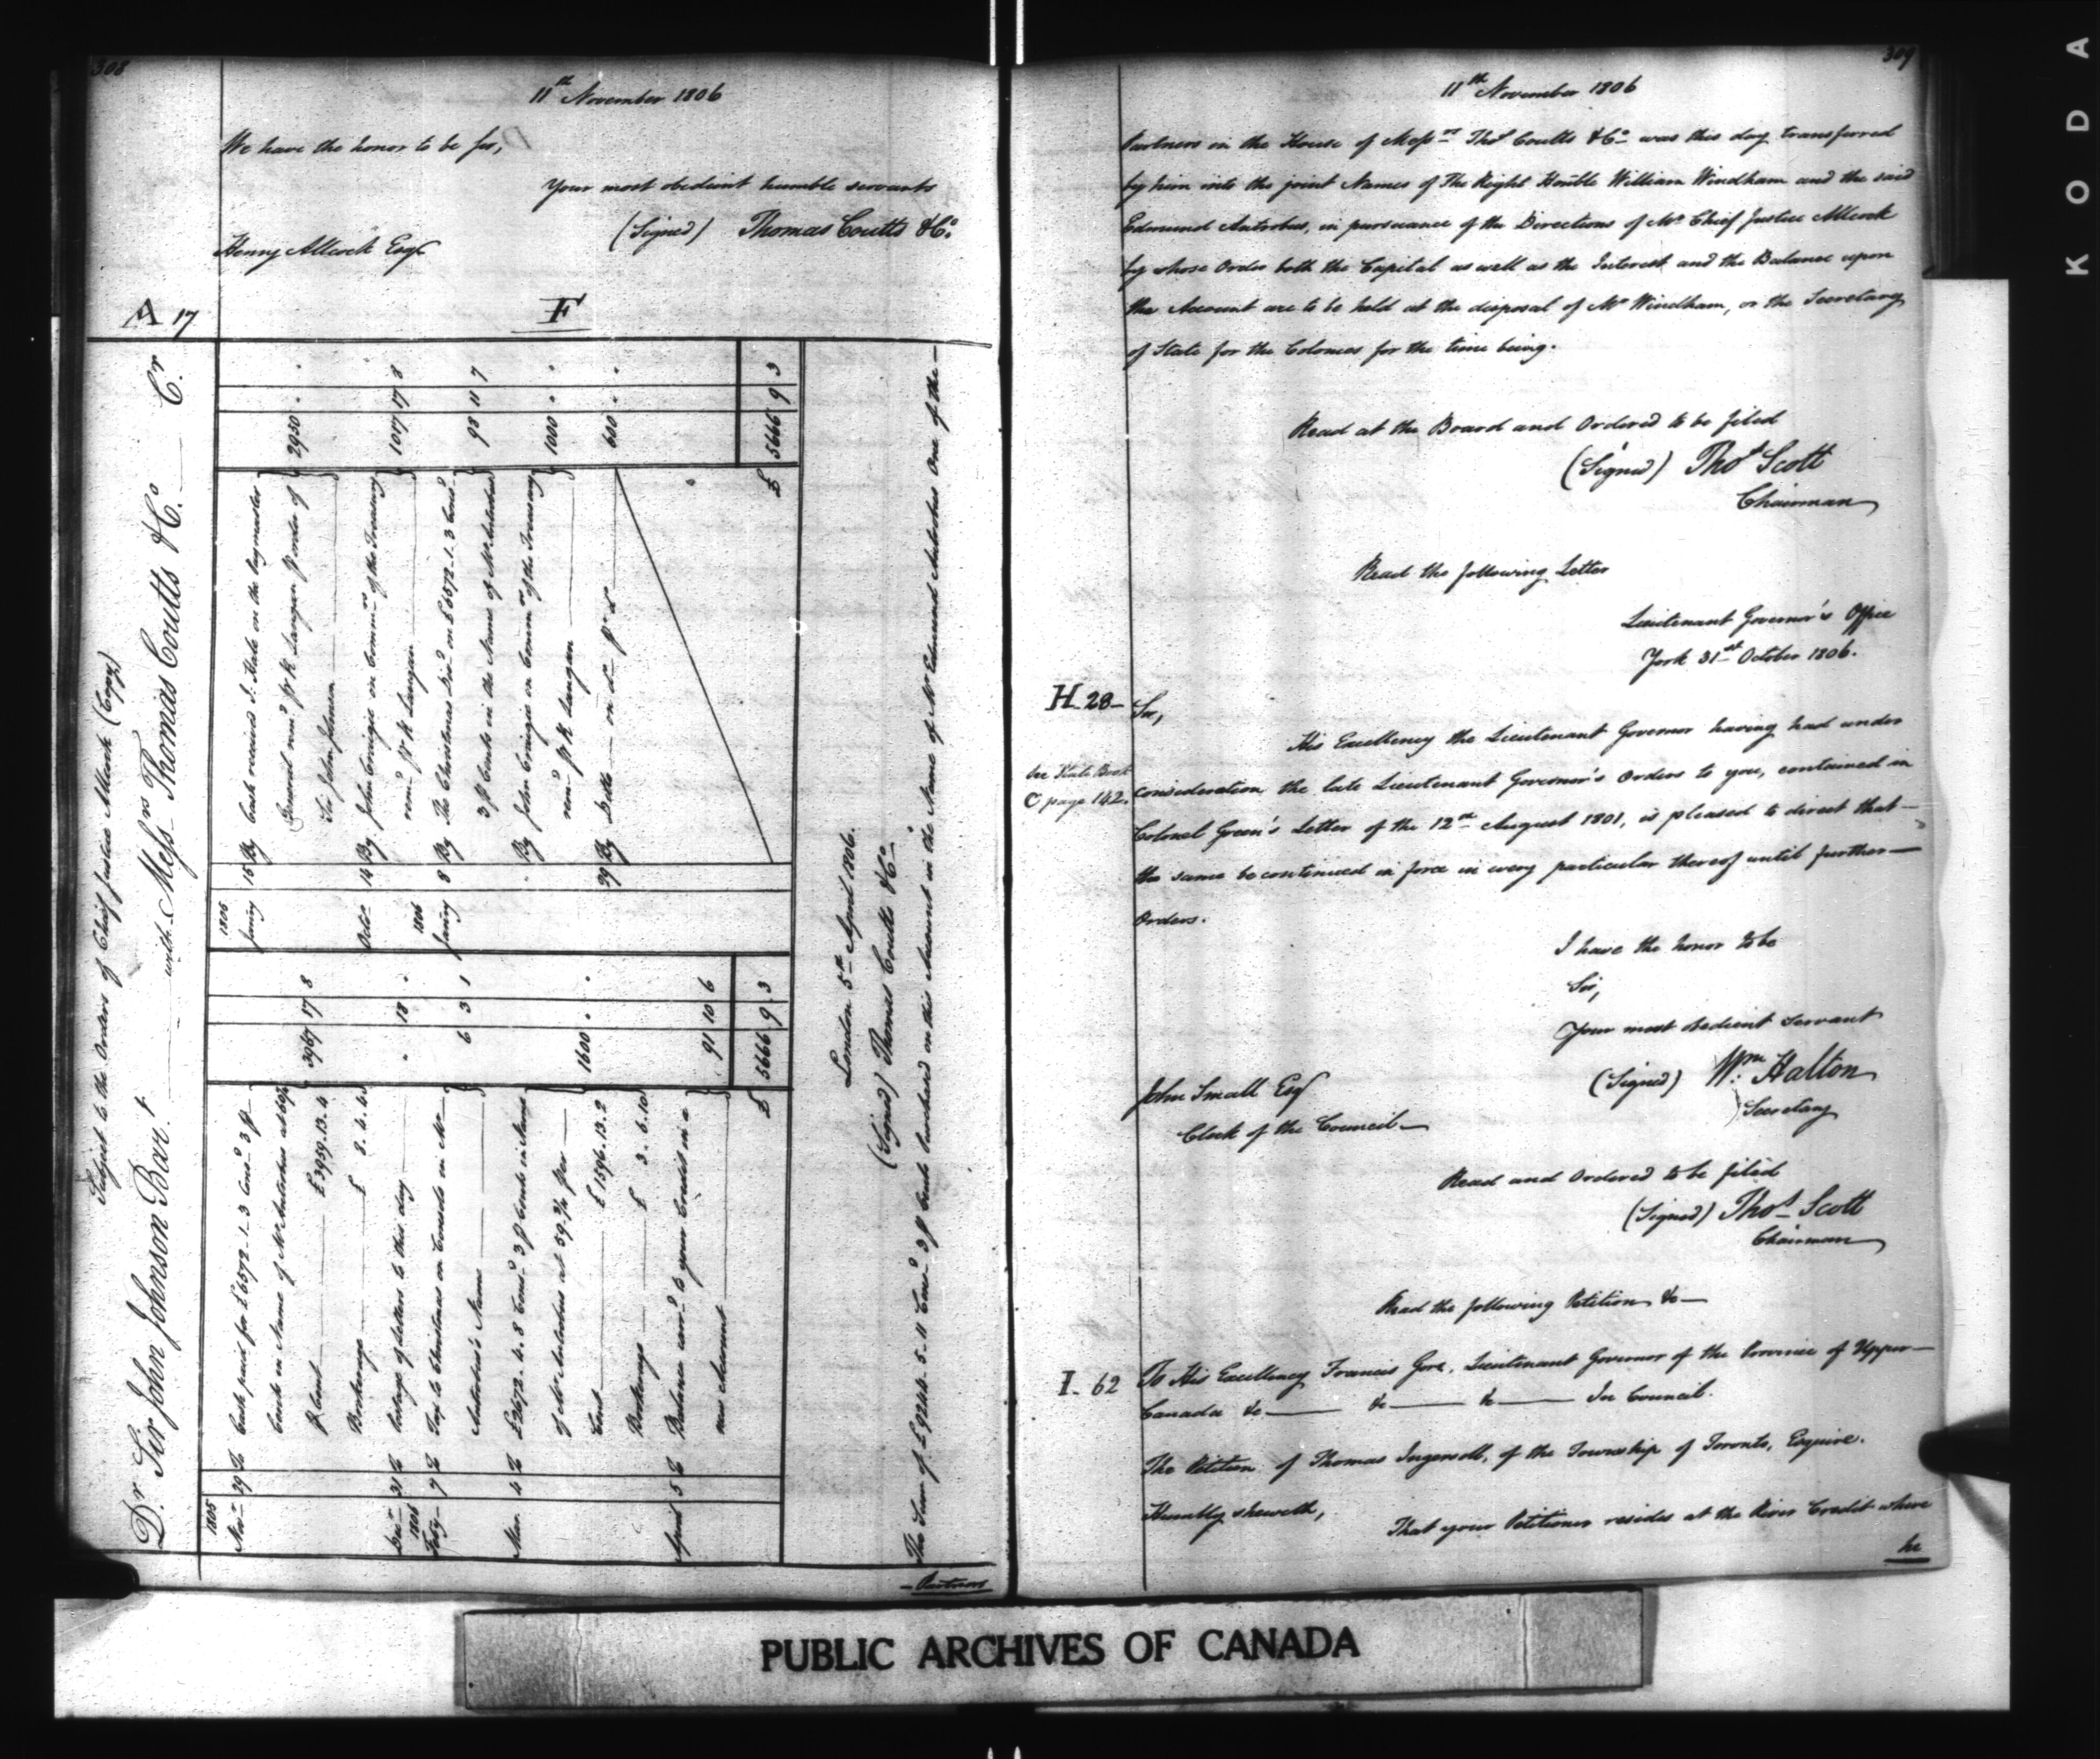 308
11th November 1806
We have the honor to be &c,
Your most obedient humble servants
(Signed) Thomas Coutts & Co.
Henry Allcock Esqr
A 17
F
Subject to the Orders of Chief Justice Allcock (Copy)
Dr. Sir John Johnson Bart. with Messrs Thomas Coutts & Co. Cr
1805
Novr 29 To Cash paid for £6572.1.3 Consd 3 p
Cents in Name of Mr Antrobus at 60⅛
P Cent £3959.13.4
Brokerage £ 8.4.4 3967 17 8
Decr 31 To Postage of letters to this day " 18 "
1806
Feby 7 To Tax to Christmas on Consols in Mr
Antrobus's Name 6 3 1
Mar. 4 To £2672.4.8 Consd 3 p Cents in Name
of Mr Antrobus at 59¾ per
Cent £1596.13.2
Brokerage £ 3.6.10 1600 " "
April 5 To Balance carrd to your Credit in a
new Account 91 10 6
£ 5666 9 3
1805
Janry 15 By Cash received I. Hale on the Paymaster
General remd p K Langan p order of
Sir John Johnson 2950 " "
Octr 14 By John Craigie on Commrs of the Treasury
remd p K Langan 1017 17 8
1806
Janry 8 By The Christmas Divd on £6572.1.3 Consd
3 p Cents in the Name of Mr Antrobus 98 11 7
" By John Craigie on Commrs of the Treasury
remd p K Langan 1000 " "
29 By Ditto on do p do 600 " "
£ 5666 9 3
London 5th April 1806.
(Signed) Thomas Coutts & Co.
The Sum of £9244.5.11 Consd 3 p Cents Purchased on this Account in the Name of Mr Edmund Antrobus One of the
Partners
309
11th November 1806
Partners in the House of Messrs Thos Coutts & Co was this day transferred
by him into the joint Names of The Right Honble William Windham and the said
Edmund Antrobus, in pursuance of the Directions of Mr Chief Justice Allcock
by whose Order both the Capital as well as the Interest and the Balance upon
the Account are to be held at the disposal of Mr Windham, or the Secretary
of State for the Colonies for the time being.
Read at the Board and Ordered to be filed
(Signed) Thos Scott
Chairman
Read the following Letter
Lieutenant Governor's Office
York 31st October 1806.
H 28
Sir,
His Excellency the Lieutenant Governor having had under
See State Book
C page 142.
consideration the late Lieutenant Governor's Orders to you, contained in
Colonel Green's Letter of the 12th August 1801, is pleased to direct that
the same be continued in force in every particular thereof until further
Orders.
I have the honor to be
Sir,
Your most obedient Servant
(Signed) Wm Halton
Secretary
John Small Esqr
Clerk of the Council
Read and Ordered to be filed
(Signed) Thos Scott
Chairman
Read the following Petition &c
I. 62
To His Excellency Francis Gore, Lieutenant Governor of the Province of Upper
Canada &c &c &c In Council.
The Petition of Thomas Ingersoll, of the Township of Toronto, Esquire.
Humbly sheweth,
That your Petitioner resides at the River Credit where
he
PUBLIC ARCHIVES OF CANADA
KODA